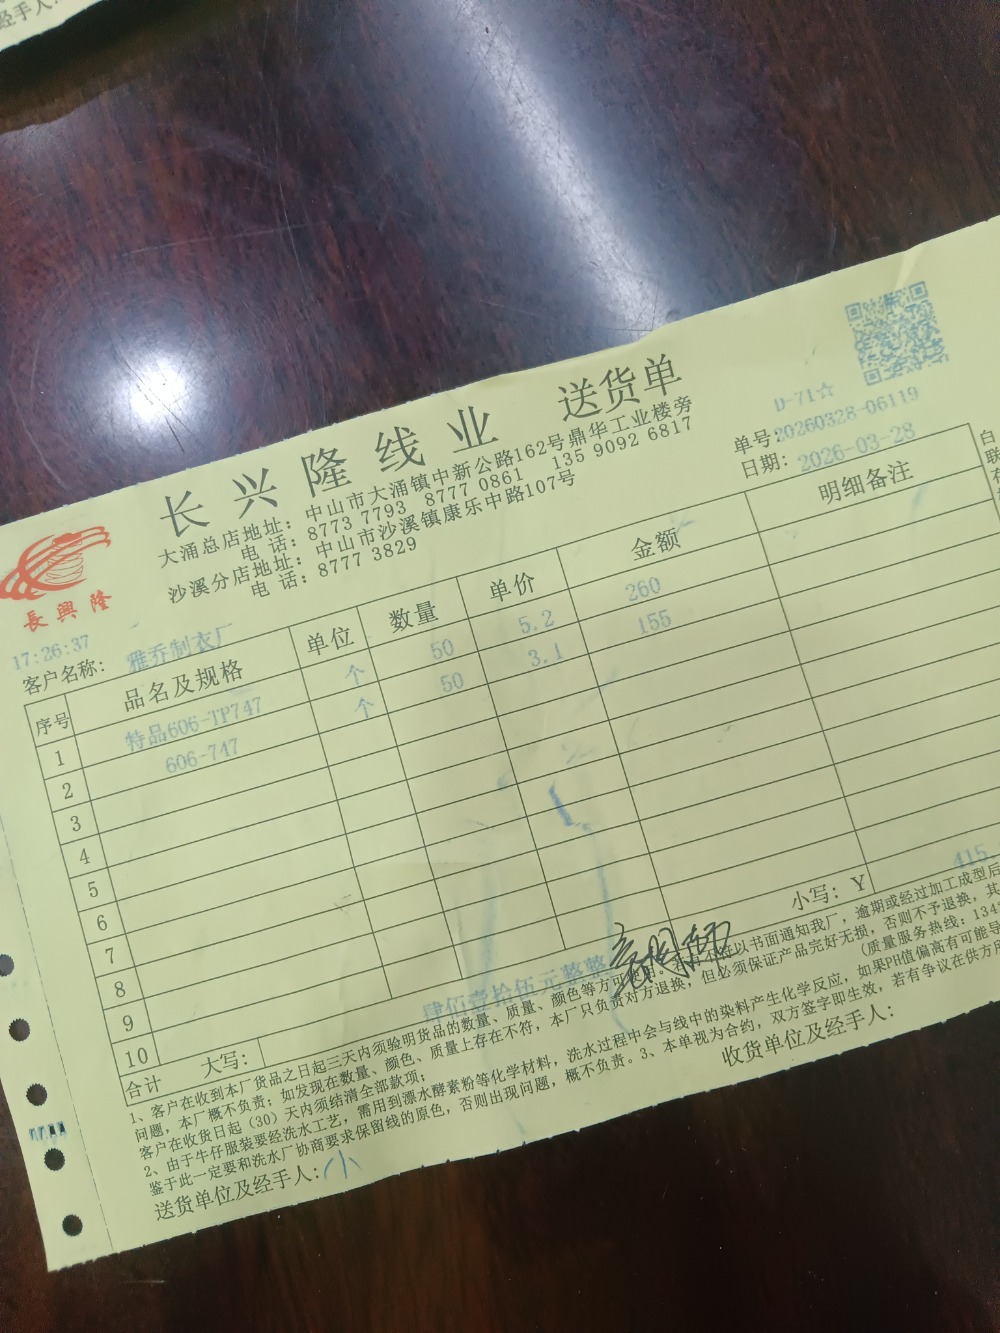 经手人:
长兴隆线业 送货单
大涌总店地址：中山市大涌镇中新公路162号鼎华工业楼旁
电 话：8773 7793 8777 0861 135 9092 6817
沙溪分店地址：中山市沙溪镇康乐中路107号
电 话：8777 3829
D-71☆
单号:20260328-06119
日期: 2026-03-28
長興隆
17:26:37
客户名称: 雅乔制衣厂
序号 品名及规格 单位 数量 单价 金额 明细备注
1 特品606-TP747 个 50 5.2 260
2 606-747 个 50 3.1 155
3
4
5
6
7
8
9
10
合计 大写: 肆佰壹拾伍元整 小写: Y 415
1、客户在收到本厂货品之日起三天内须验明货品的数量、质量、颜色等方可使用。 以书面通知我厂，逾期或经过加工成型后
问题，本厂概不负责；如发现在数量、颜色、质量上存在不符，本厂只负责对方退换，但必须保证产品完好无损，否则不予退换，其
客户在收货日起（30）天内须结清全部款项； (质量服务热线：134
2、由于牛仔服装要经洗水工艺，需用到漂水酵素粉等化学材料，洗水过程中会与线中的染料产生化学反应，如果PH值偏高有可能导
鉴于此一定要和洗水厂协商要求保留线的原色，否则出现问题，概不负责。3、本单视为合约，双方签字即生效，若有争议在供方所
送货单位及经手人: 小 收货单位及经手人:
白
联